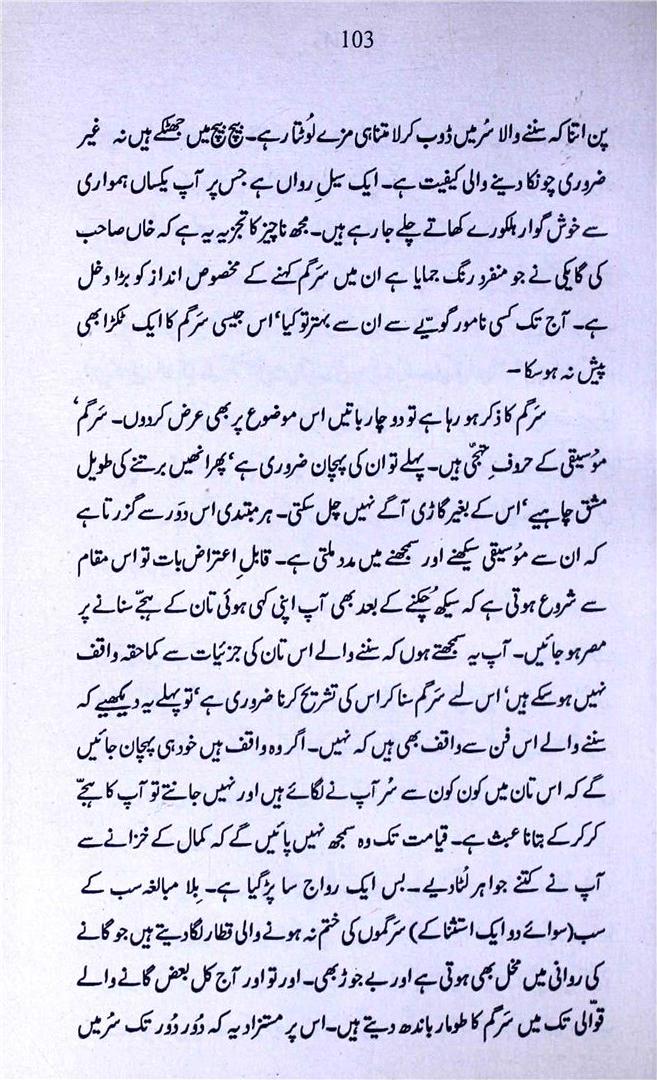 103
پن اتنا کہ سننے والا سُر میں ڈوب کر لامتناہی مزے لُوٹتا رہے۔ بیچ بیچ میں جھٹکے ہیں نہ غیر
ضروری چونکا دینے والی کیفیت ہے۔ ایک سیلِ رواں ہے جس پر آپ یکساں ہمواری
سے خوش گوار ہلکورے کھاتے چلے جا رہے ہیں۔ مجھ ناچیز کا تجزیہ یہ ہے کہ خاں صاحب
کی گائیکی نے جو منفرد رنگ جمایا ہے ان میں سَرگم کہنے کے مخصوص انداز کو بڑا دخل
ہے۔ آج تک کسی نامور گویّے سے ان سے بہتر تو کیا، اس جیسی سَرگم کا ایک ٹکڑا بھی
پیش نہ ہو سکا –
سَرگم کا ذکر ہو رہا ہے تو دو چار باتیں اس موضوع پر بھی عرض کر دوں۔ سَرگم،
موُسیقی کے حروفِ تہجّی ہیں۔ پہلے تو ان کی پہچان ضروری ہے، پھر انھیں برتنے کی طویل
مشق چاہیے، اس کے بغیر گاڑی آگے نہیں چل سکتی۔ ہر مبتدی اس دَور سے گزرتا ہے
کہ ان سے موُسیقی سیکھنے اور سمجھنے میں مدد ملتی ہے۔ قابلِ اعتراض بات تو اس مقام
سے شروع ہوتی ہے کہ سیکھ چُکنے کے بعد بھی آپ اپنی کہی ہوئی تان کے ہجّے سنانے پر
مصر ہو جائیں۔ آپ یہ سمجھتے ہوں کہ سننے والے اس تان کی جزئیات سے کماحقہ واقف
نہیں ہو سکے ہیں، اس لے سَرگم سنا کر اس کی تشریح کرنا ضروری ہے، تو پہلے یہ دیکھیے کہ
سننے والے اس فن سے واقف بھی ہیں کہ نہیں۔ اگر وہ واقف ہیں خود ہی پہچان جائیں
گے کہ اس تان میں کون کون سے سُر آپ نے لگائے ہیں اور نہیں جانتے تو آپ کا ہجّے
کر کر کے بتانا عبث ہے۔ قیامت تک وہ سمجھ نہیں پائیں گے کہ کمال کے خزانے سے
آپ نے کتنے جواہر لٹا دیے۔ بس ایک رواج سا پڑ گیا ہے۔ بِلا مبالغہ سب کے
سب (سوائے دو ایک استثنا کے) سَرگموں کی ختم نہ ہونے والی قطار لگا دیتے ہیں جو گانے
کی روانی میں مخل بھی ہوتی ہے اور بے جوڑ بھی۔ اور تو اور آج کل بعض گانے والے
قوّالی تک میں سَرگم کا طومار باندھ دیتے ہیں۔ اس پر مستزاد یہ کہ دُور دُور تک سُر میں